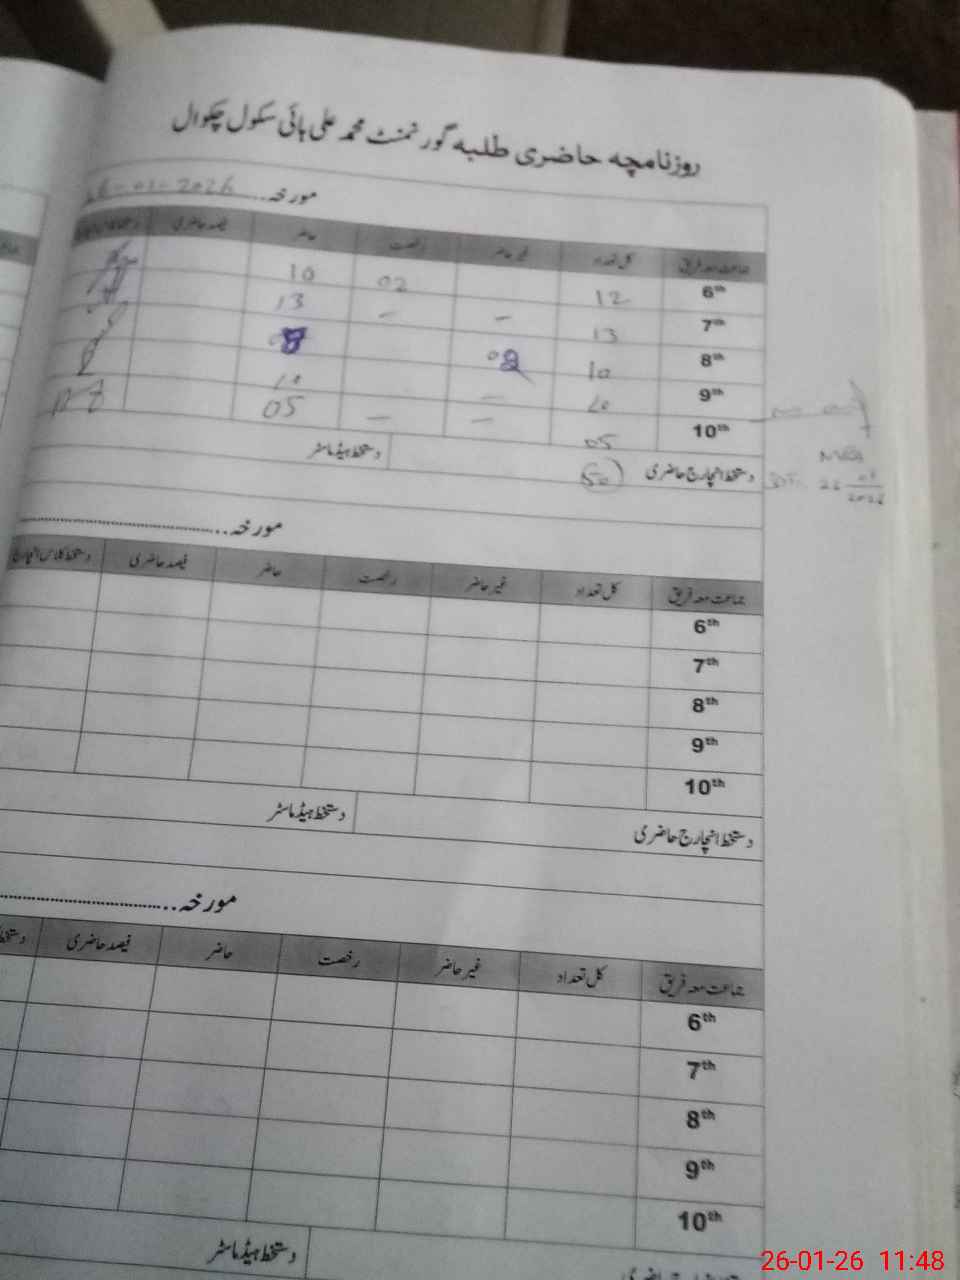 روزنامچہ حاضری طلبہ گورنمنٹ محمد علی ہائی سکول چکوال
مورخہ 26-01-2026
جماعت معہ فریق کل تعداد غیر حاضر رخصت حاضر فیصد حاضری
6th 12 02 10
7th 13 - - 13
8th 10
9th 10 - 10
10th 05 - - 05
دستخط انچارج حاضری دستخط ہیڈماسٹر
50
مورخہ
جماعت معہ فریق کل تعداد غیر حاضر رخصت حاضر فیصد حاضری دستخط کلاس انچارج
6th
7th
8th
9th
10th
دستخط انچارج حاضری دستخط ہیڈماسٹر
مورخہ
جماعت معہ فریق کل تعداد غیر حاضر رخصت حاضر فیصد حاضری
6th
7th
8th
9th
10th
دستخط ہیڈماسٹر
26-01-26 11:48